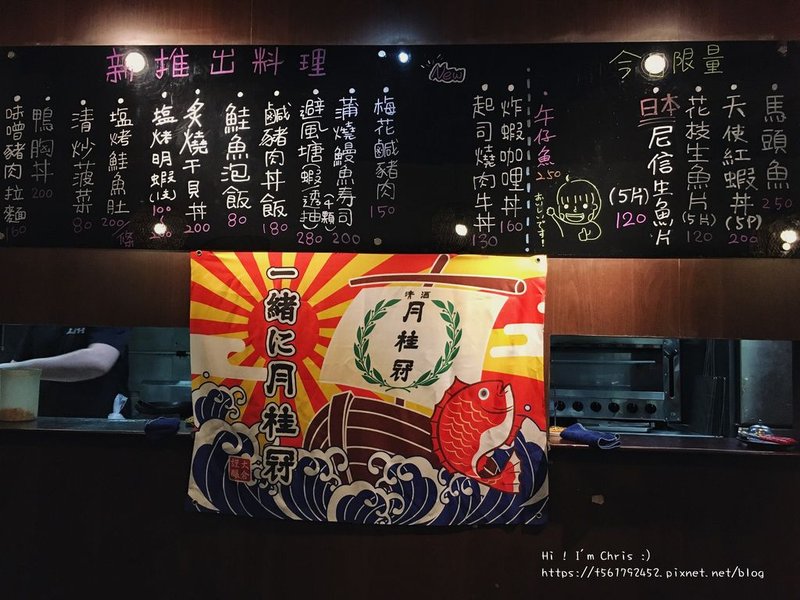 今日限量
馬頭魚 250
天使紅蝦丼 (5P) 200
花枝生魚片 (5片) 120
日本尼信生魚片 (5片) 120
午仔魚 250
おいしいです!
New
炸蝦咖哩丼 160
起司燒肉牛丼 130
新推出料理
梅花鹹豬肉 150
蒲燒鰻魚壽司 (4顆) 200
避風塘蝦(透抽) 280
鹹豬肉丼飯 180
鮭魚泡飯 80
炙燒干貝丼 200
塩烤明蝦(隻) 100
塩烤鮭魚肚 條 200
清炒菠菜 80
鴨胸丼 200
味噌豬肉拉麵 160
一緒に月桂冠
清酒
月桂冠
Hi ! I'm Chris :)
https://t561792452.pixnet.net/blog